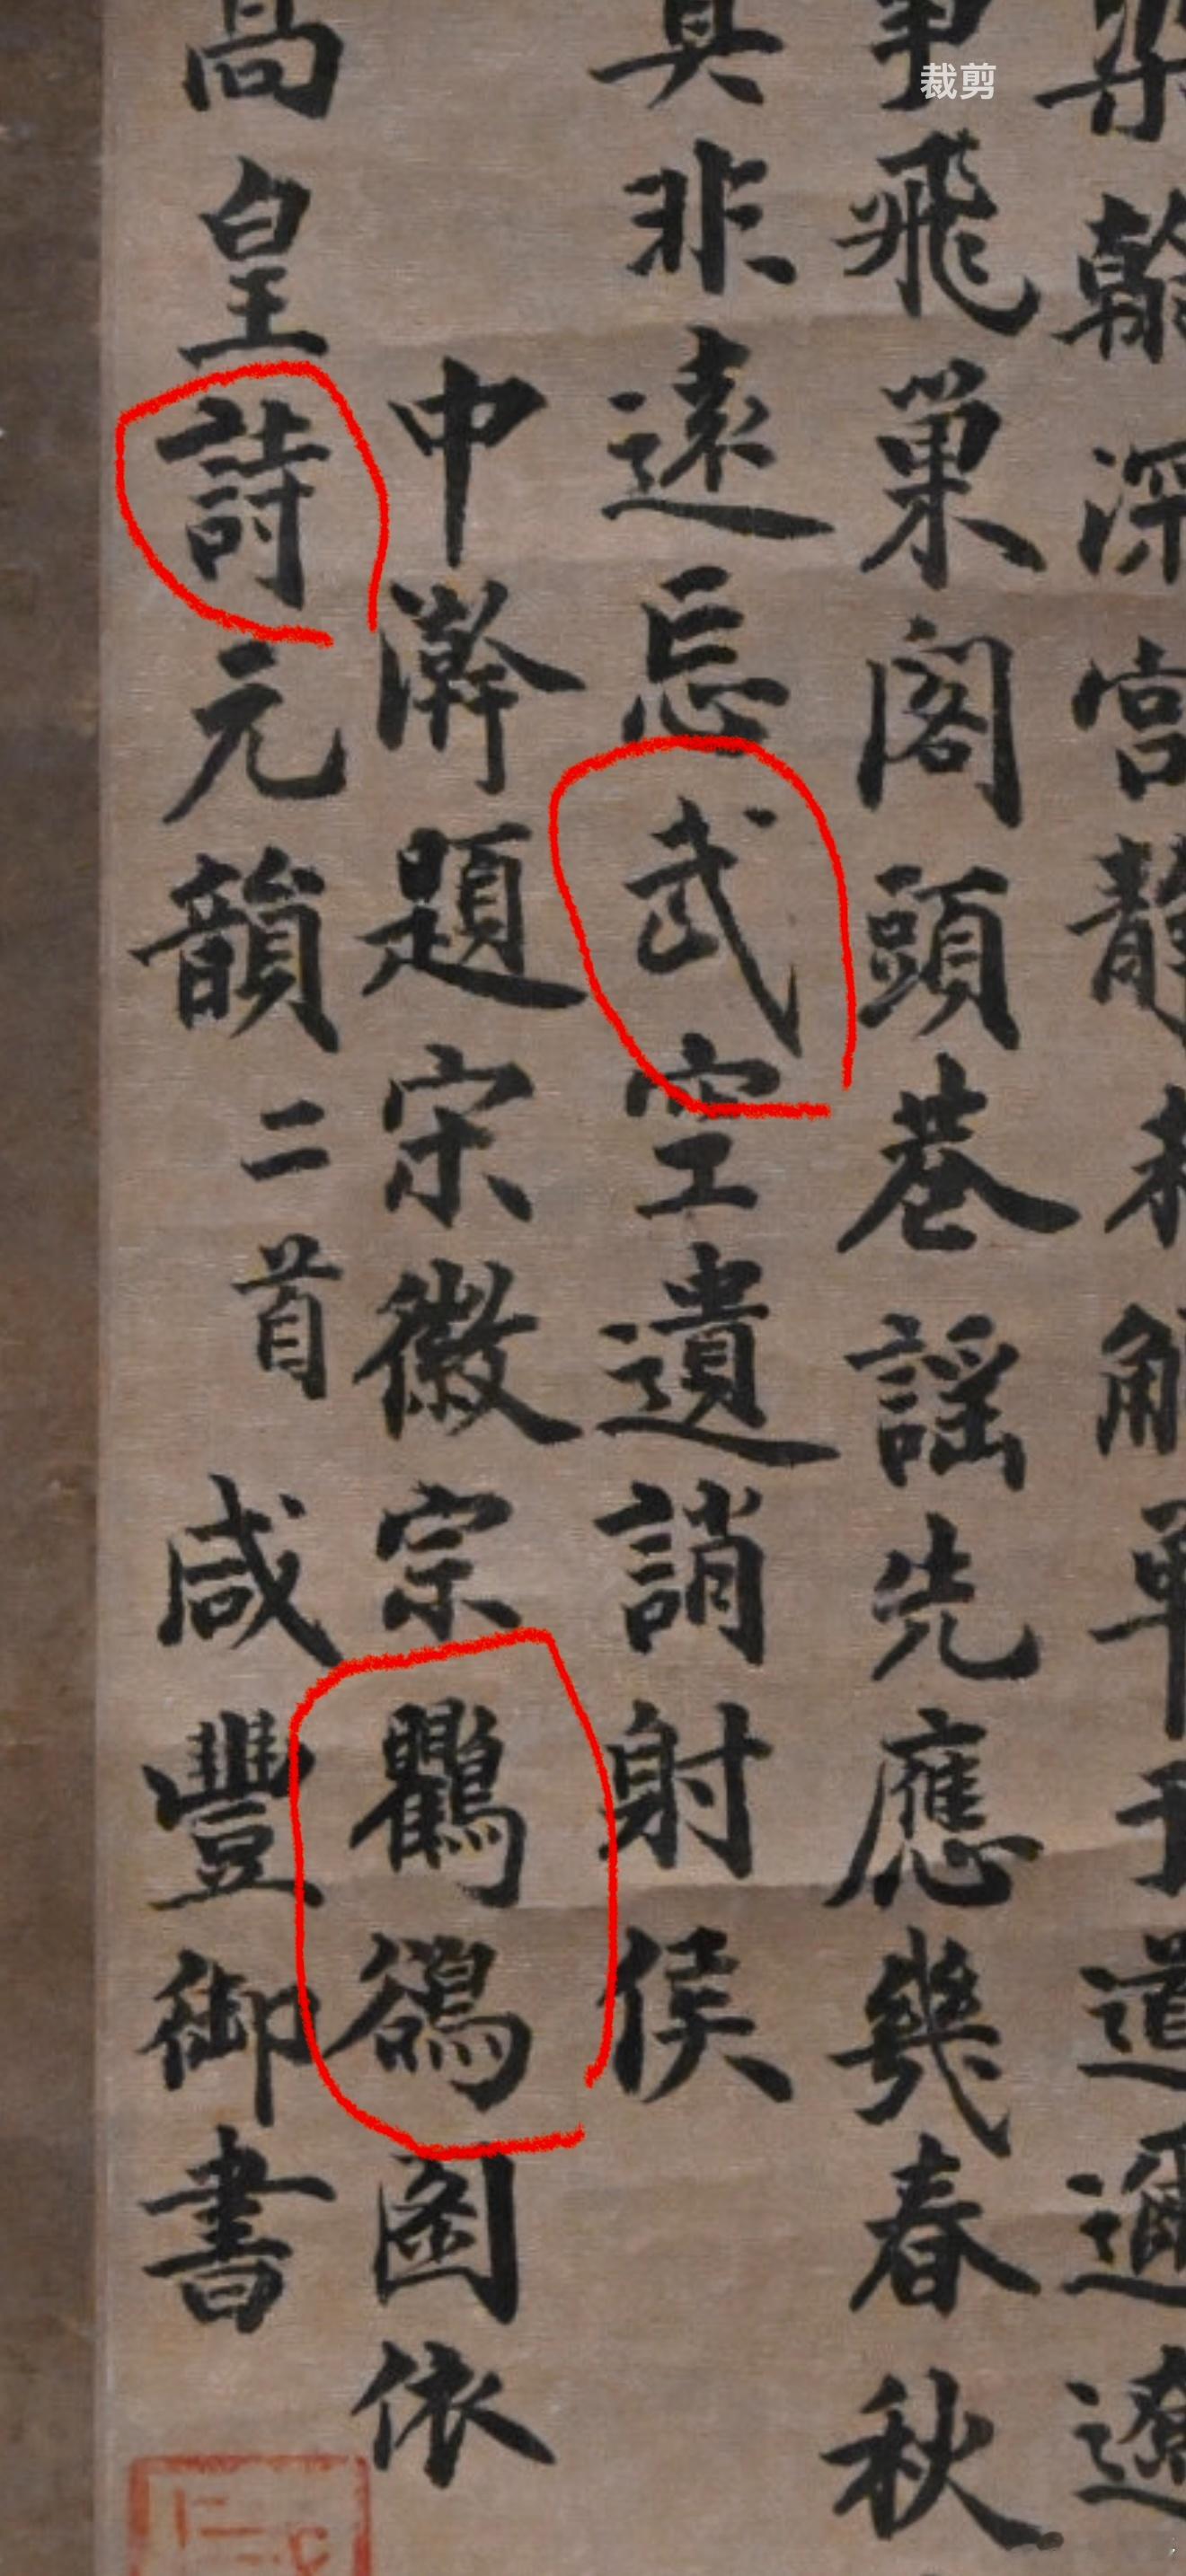 裁剪
深宮靜解單于道遼
飛巢閣頭巷謡先應幾春秋
非遠忘武空遺誚射侯
中澣題宋徽宗鸜鵒圖依
高皇詩元韻二首 咸豐御書